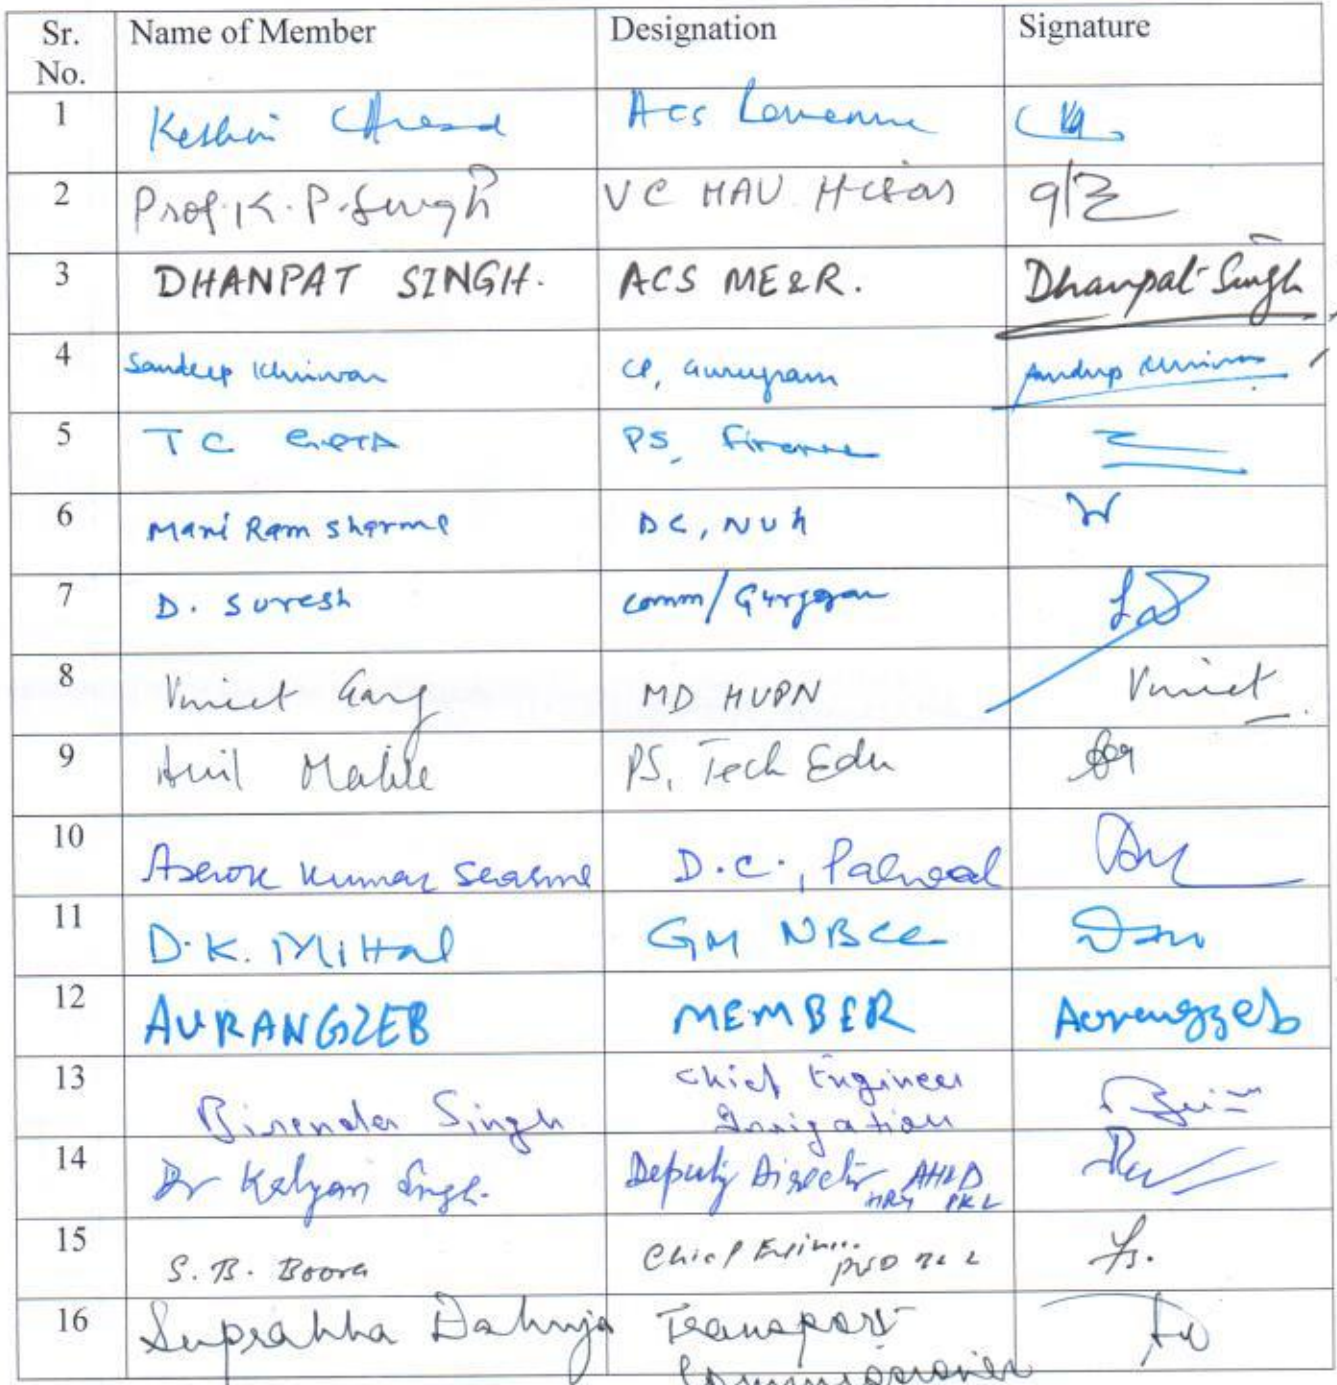 Sr. No. Name of Member Designation Signature
1 Keshni Anand ACS Revenue
2 Prof. K. P. Singh VC HAU Hisar
3 DHANPAT SINGH. ACS ME&R. Dhanpat Singh
4 Sandeep Khirwar CP, Gurugram Sandeep Khirwar
5 T C GUPTA PS, Finance
6 Mani Ram Sharma DC, NUh
7 D. Suresh Comm/Gurgaon
8 Vineet Garg MD HVPN Vineet
9 Anil Malik PS, Tech Edu
10 Ashok Kumar Sharma D.C., Palwal
11 D.K. Mittal GM NBCC
12 AURANGZEB MEMBER Aurangzeb
13 Birender Singh Chief Engineer Irrigation
14 Dr Kalyan Singh. Deputy Director AHLD HRY PKL
15 S. B. Boora Chief PWD
16 Suprabha Dahuja Transport Commissioner